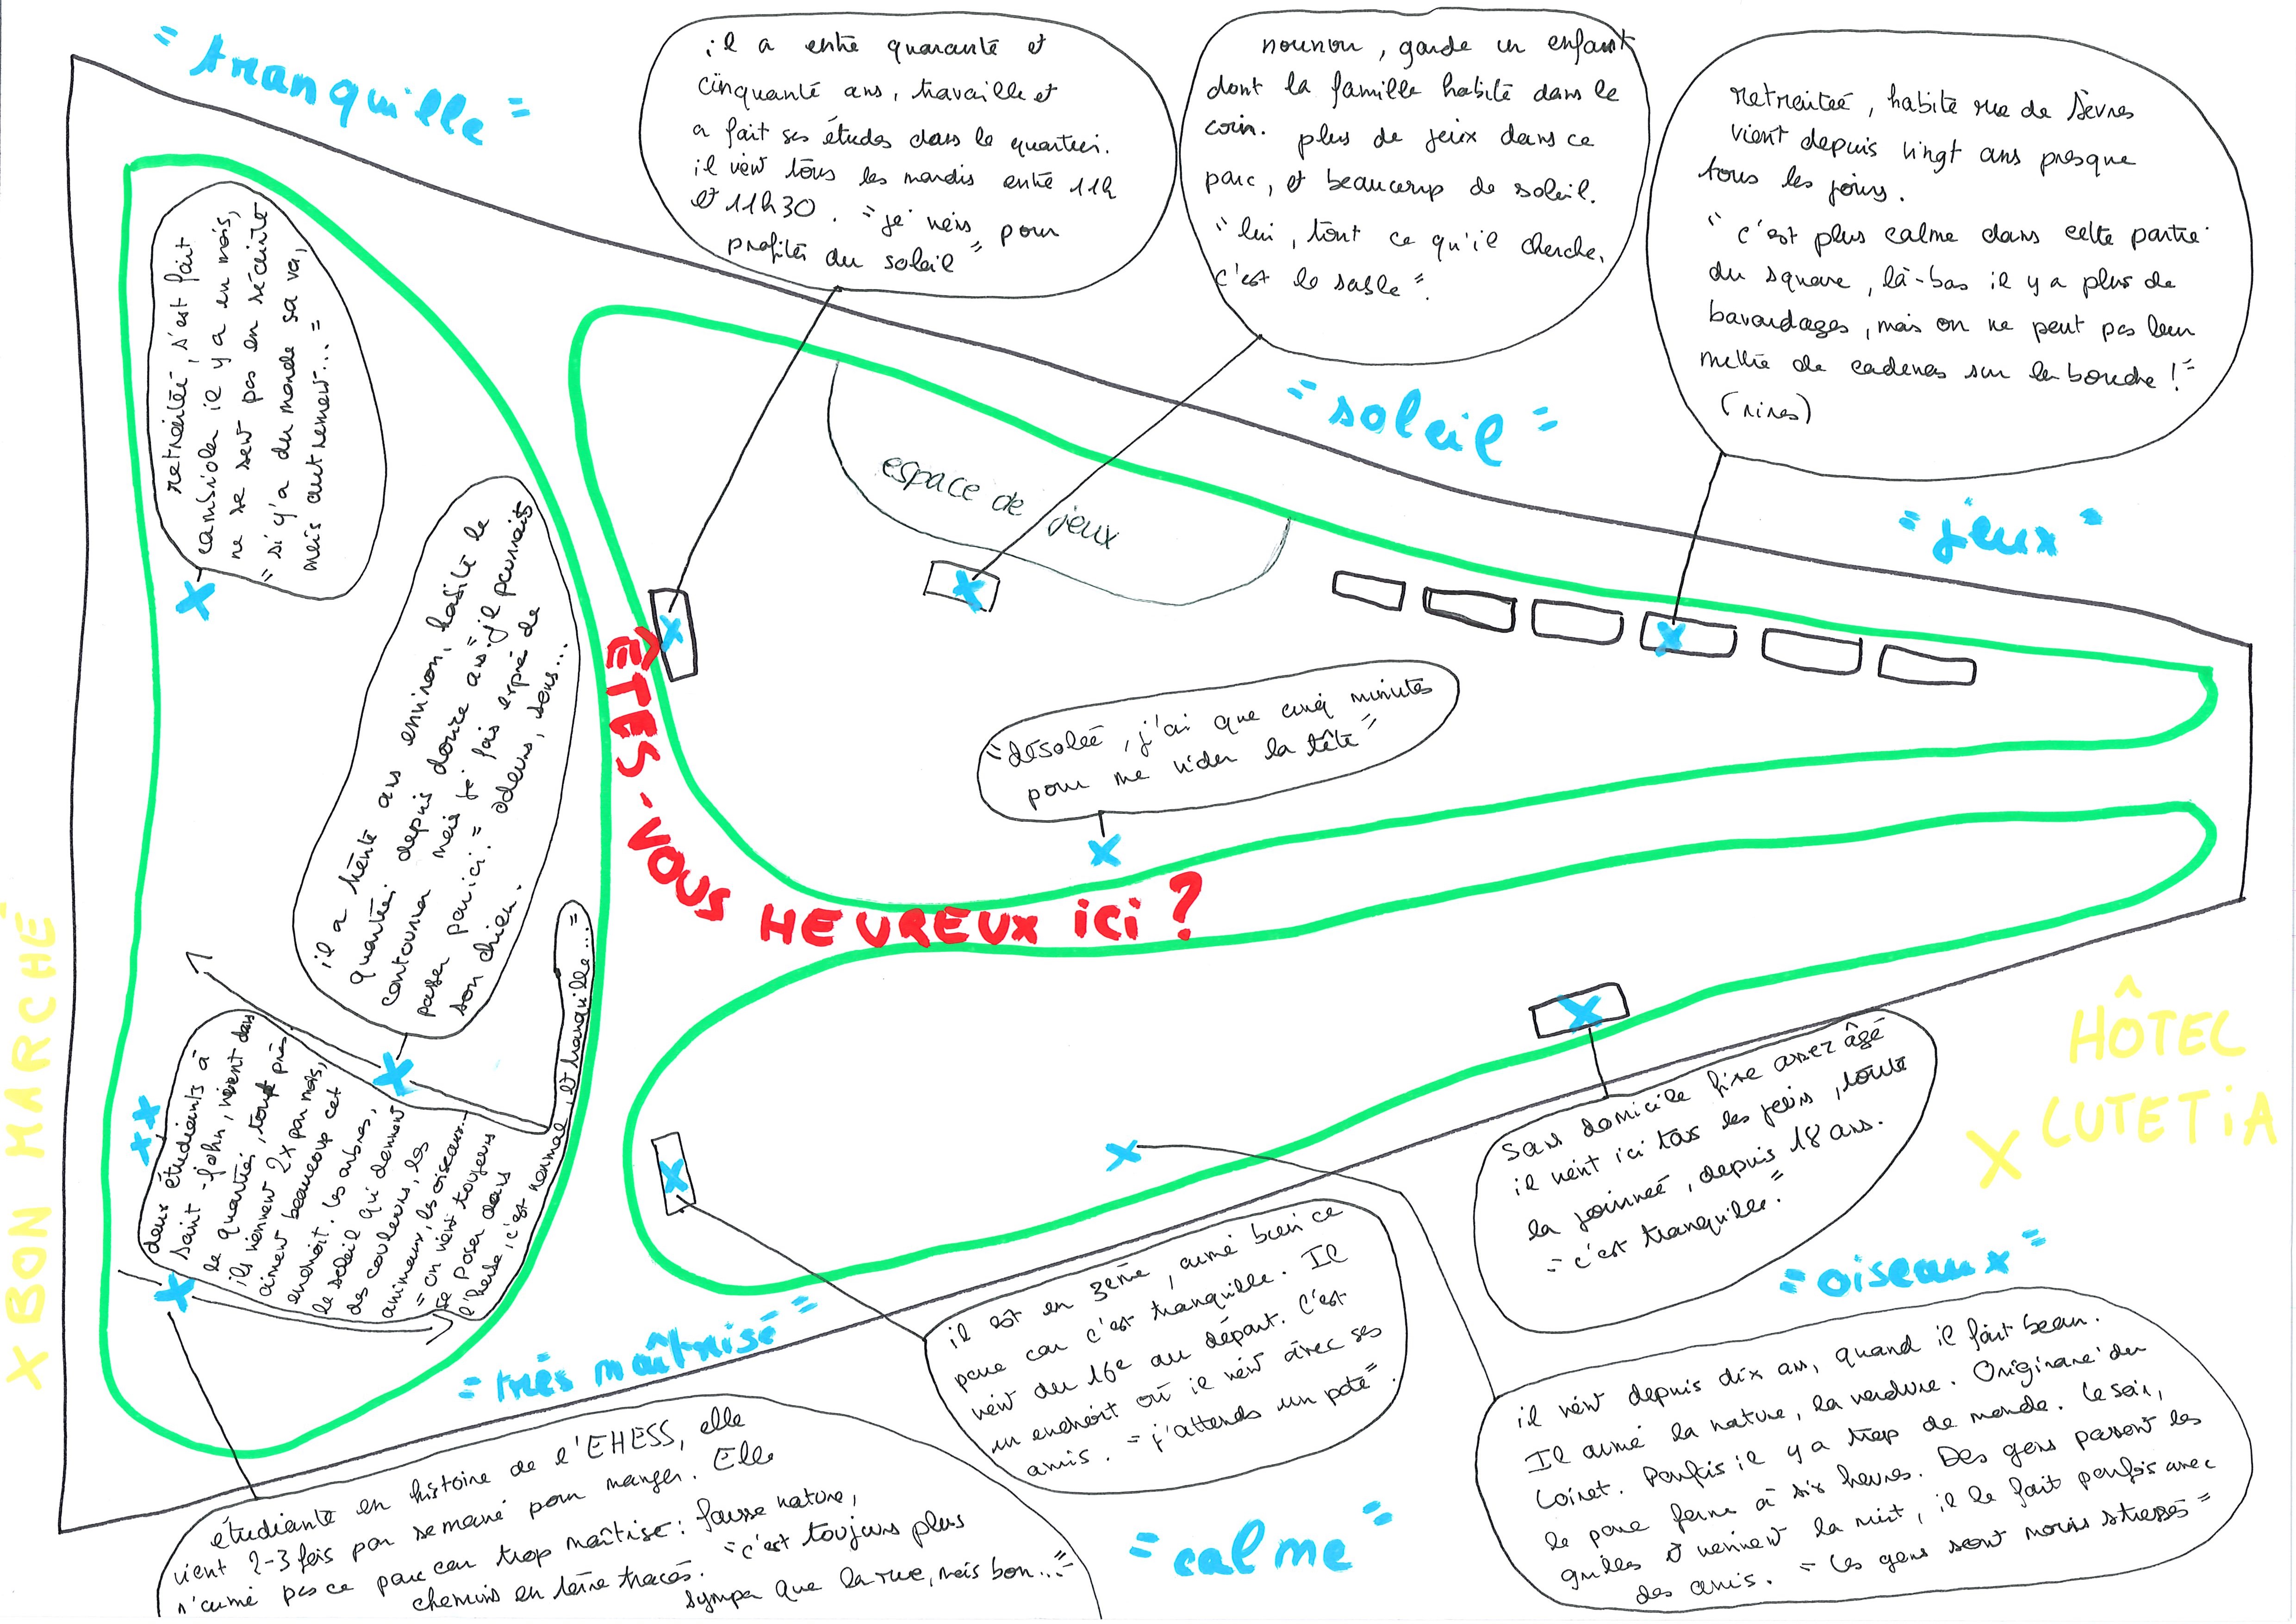 "tranquille"
il a entre quarante et
cinquante ans, travaille et
a fait ses études dans le quartier.
il vient tous les mardis entre 11h
et 11h30. "je viens pour
profiter du soleil"
nounou, garde un enfant
dont la famille habite dans le
coin. plus de jeux dans ce
parc, et beaucoup de soleil.
"lui, tout ce qu'il cherche,
c'est le sable".
retraitée, habite rue de Sèvres
vient depuis vingt ans presque
tous les jours.
"c'est plus calme dans cette partie
du square, là-bas il y a plus de
bavardages, mais on ne peut pas leur
mettre de cadenas sur la bouche !"
(rires)
"soleil"
"jeux"
retraitée, s'est fait
cambrioler il y a un mois,
ne se sent pas en sécurité
"si y'a du monde sa va,
mais autrement..."
espace de jeux
il a trente ans environ, habite le
quartier depuis douze ans. "je pourrais
contourner mais je fais exprès de
passer par ici." odeurs, sons...
son chien.
"désolée, j'ai que cinq minutes
pour me vider la tête"
ÊTES-VOUS HEUREUX ici ?
X BON MARCHÉ
HÔTEL
X LUTETiA
deux étudiants à
saint-john, vivent dans
le quartier, tout près
ils viennent 2x par mois,
aiment beaucoup cet
endroit. les arbres,
le soleil qui donnent
des couleurs, les
animaux, les oiseaux...
"on vient toujours
se poser dans
l'herbe, c'est normal, et tranquille..."
sans domicile fixe assez âgé
il vient ici tous les jours, toute
la journée, depuis 18 ans.
"c'est tranquille."
"oiseaux"
"très maîtrisé"
il est en 3ème, aime bien ce
parc car c'est tranquille. Il
vient du 16e au départ. C'est
un endroit où il vient avec ses
amis. "j'attends un pote".
il vient depuis dix ans, quand il fait beau.
Il aime la nature, la verdure. Originaire du
Loiret. Parfois il y a trop de monde. Le soir,
le parc ferme à six heures. Des gens passent les
grilles et viennent la nuit, il le fait parfois avec
des amis. "Les gens sont moins stressés"
étudiante en histoire de l'EHESS, elle
vient 2-3 fois par semaine pour manger. Elle
n'aime pas ce parc car trop maîtrisé : fausse nature,
chemins en terre tracés. "c'est toujours plus
sympa que la rue, mais bon..."
"calme"